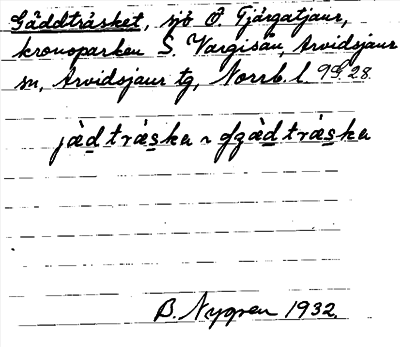 Gäddträsket, sjö Ö. Tjärgatjaur,
kronoparken S. Vargisån, Arvidsjaur
sn, Arvidsjaur tg, Norrb. l. 99, 28.
jàdtràska ~ gzàdtràska
B. Nygren 1932.